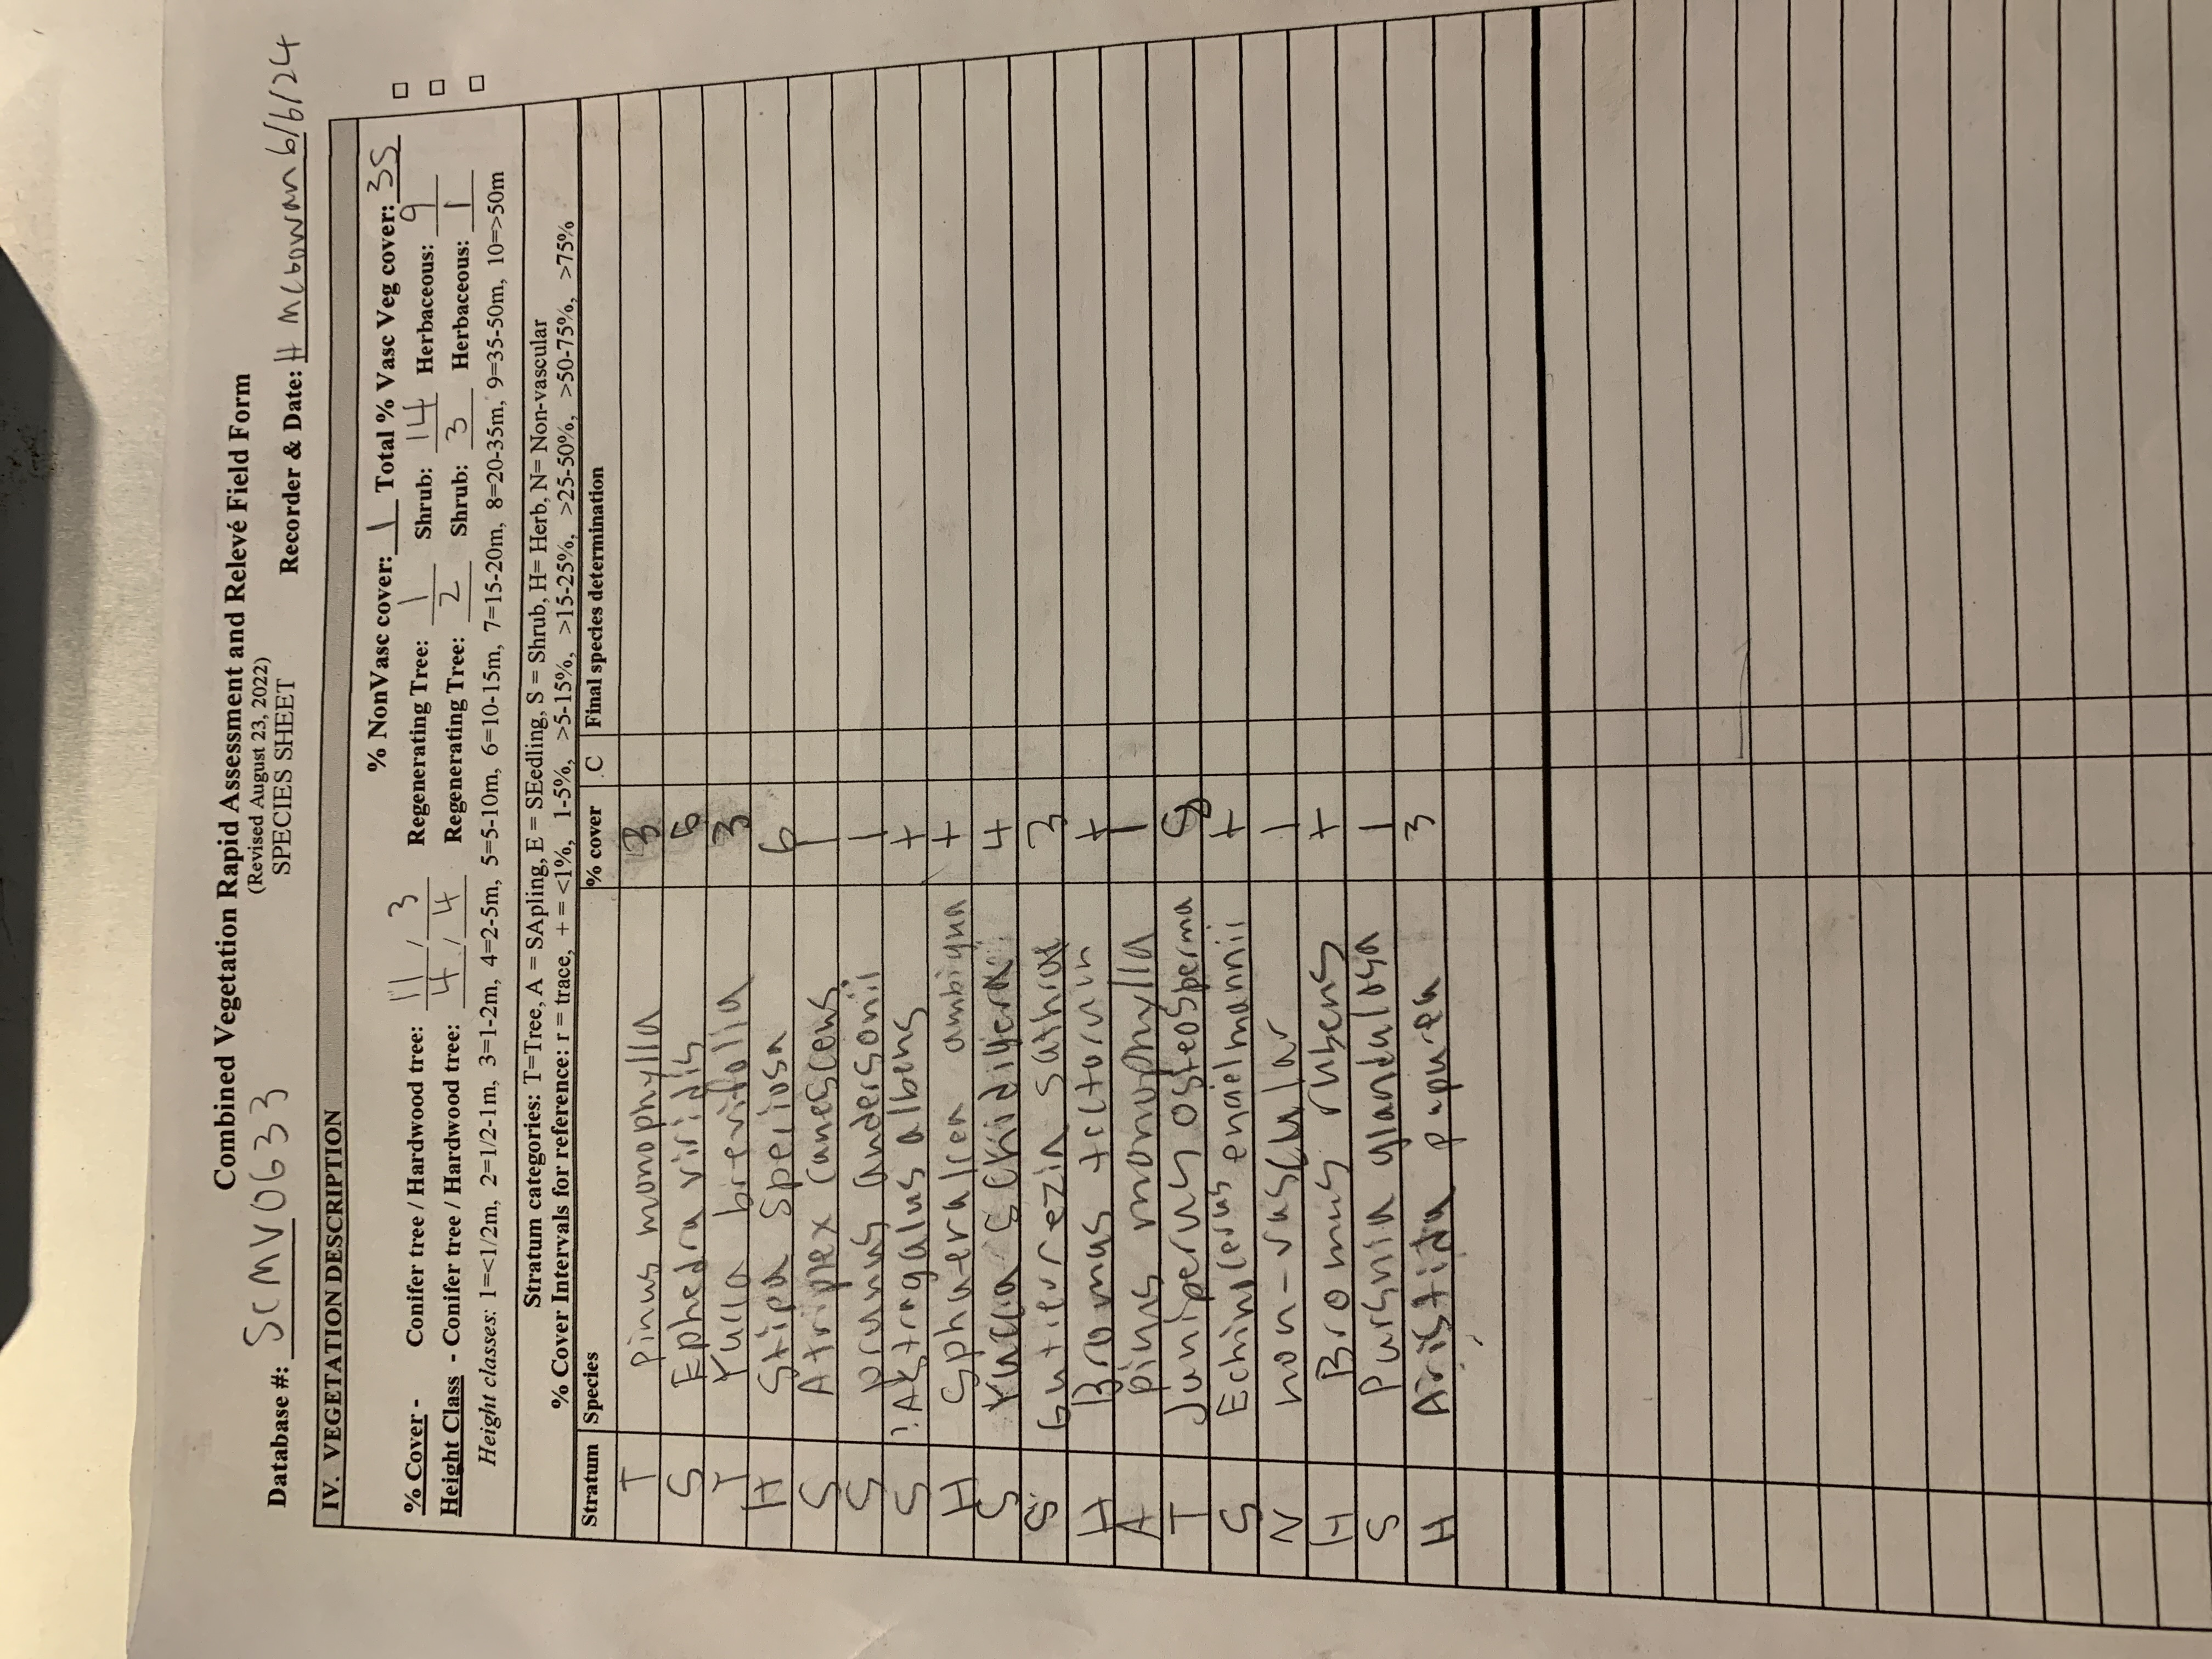 Combined Vegetation Rapid Assessment and Relevé Field Form
(Revised August 23, 2022)
SPECIES SHEET
Database #: SCMV0633 Recorder & Date: H McGowan 6/6/24
IV. VEGETATION DESCRIPTION
% NonVasc cover: 1 Total % Vasc Veg cover: 35
% Cover - Conifer tree / Hardwood tree: 11 / 3 Regenerating Tree: 1 Shrub: 14 Herbaceous: 9
Height Class - Conifer tree / Hardwood tree: 4 / 4 Regenerating Tree: 2 Shrub: 3 Herbaceous: 1
Height classes: 1=<1/2m, 2=1/2-1m, 3=1-2m, 4=2-5m, 5=5-10m, 6=10-15m, 7=15-20m, 8=20-35m, 9=35-50m, 10=>50m
Stratum categories: T=Tree, A = SApling, E = SEedling, S = Shrub, H= Herb, N= Non-vascular
% Cover Intervals for reference: r = trace, + = <1%, 1-5%, >5-15%, >15-25%, >25-50%, >50-75%, >75%
Stratum Species % cover C Final species determination
T Pinus monophylla 3
S Ephedra viridis
T Yucca brevifolia 3
H Stipa speciosa 6
S Atriplex canescens 1
S prunus andersonii 1
S ?Astragalus albens +
H Sphaeralcea ambigua +
S Yucca Schidigera 4
S Gutierrezia sathrae 3
H Bromus tectorum +
A pinus monophylla 1
T Juniperus osteosperma
S Echinocerus engelmannii +
N non-vascular 1
H Bromus rubens +
S Purshia glandulosa 1
H Aristida pupurea 3